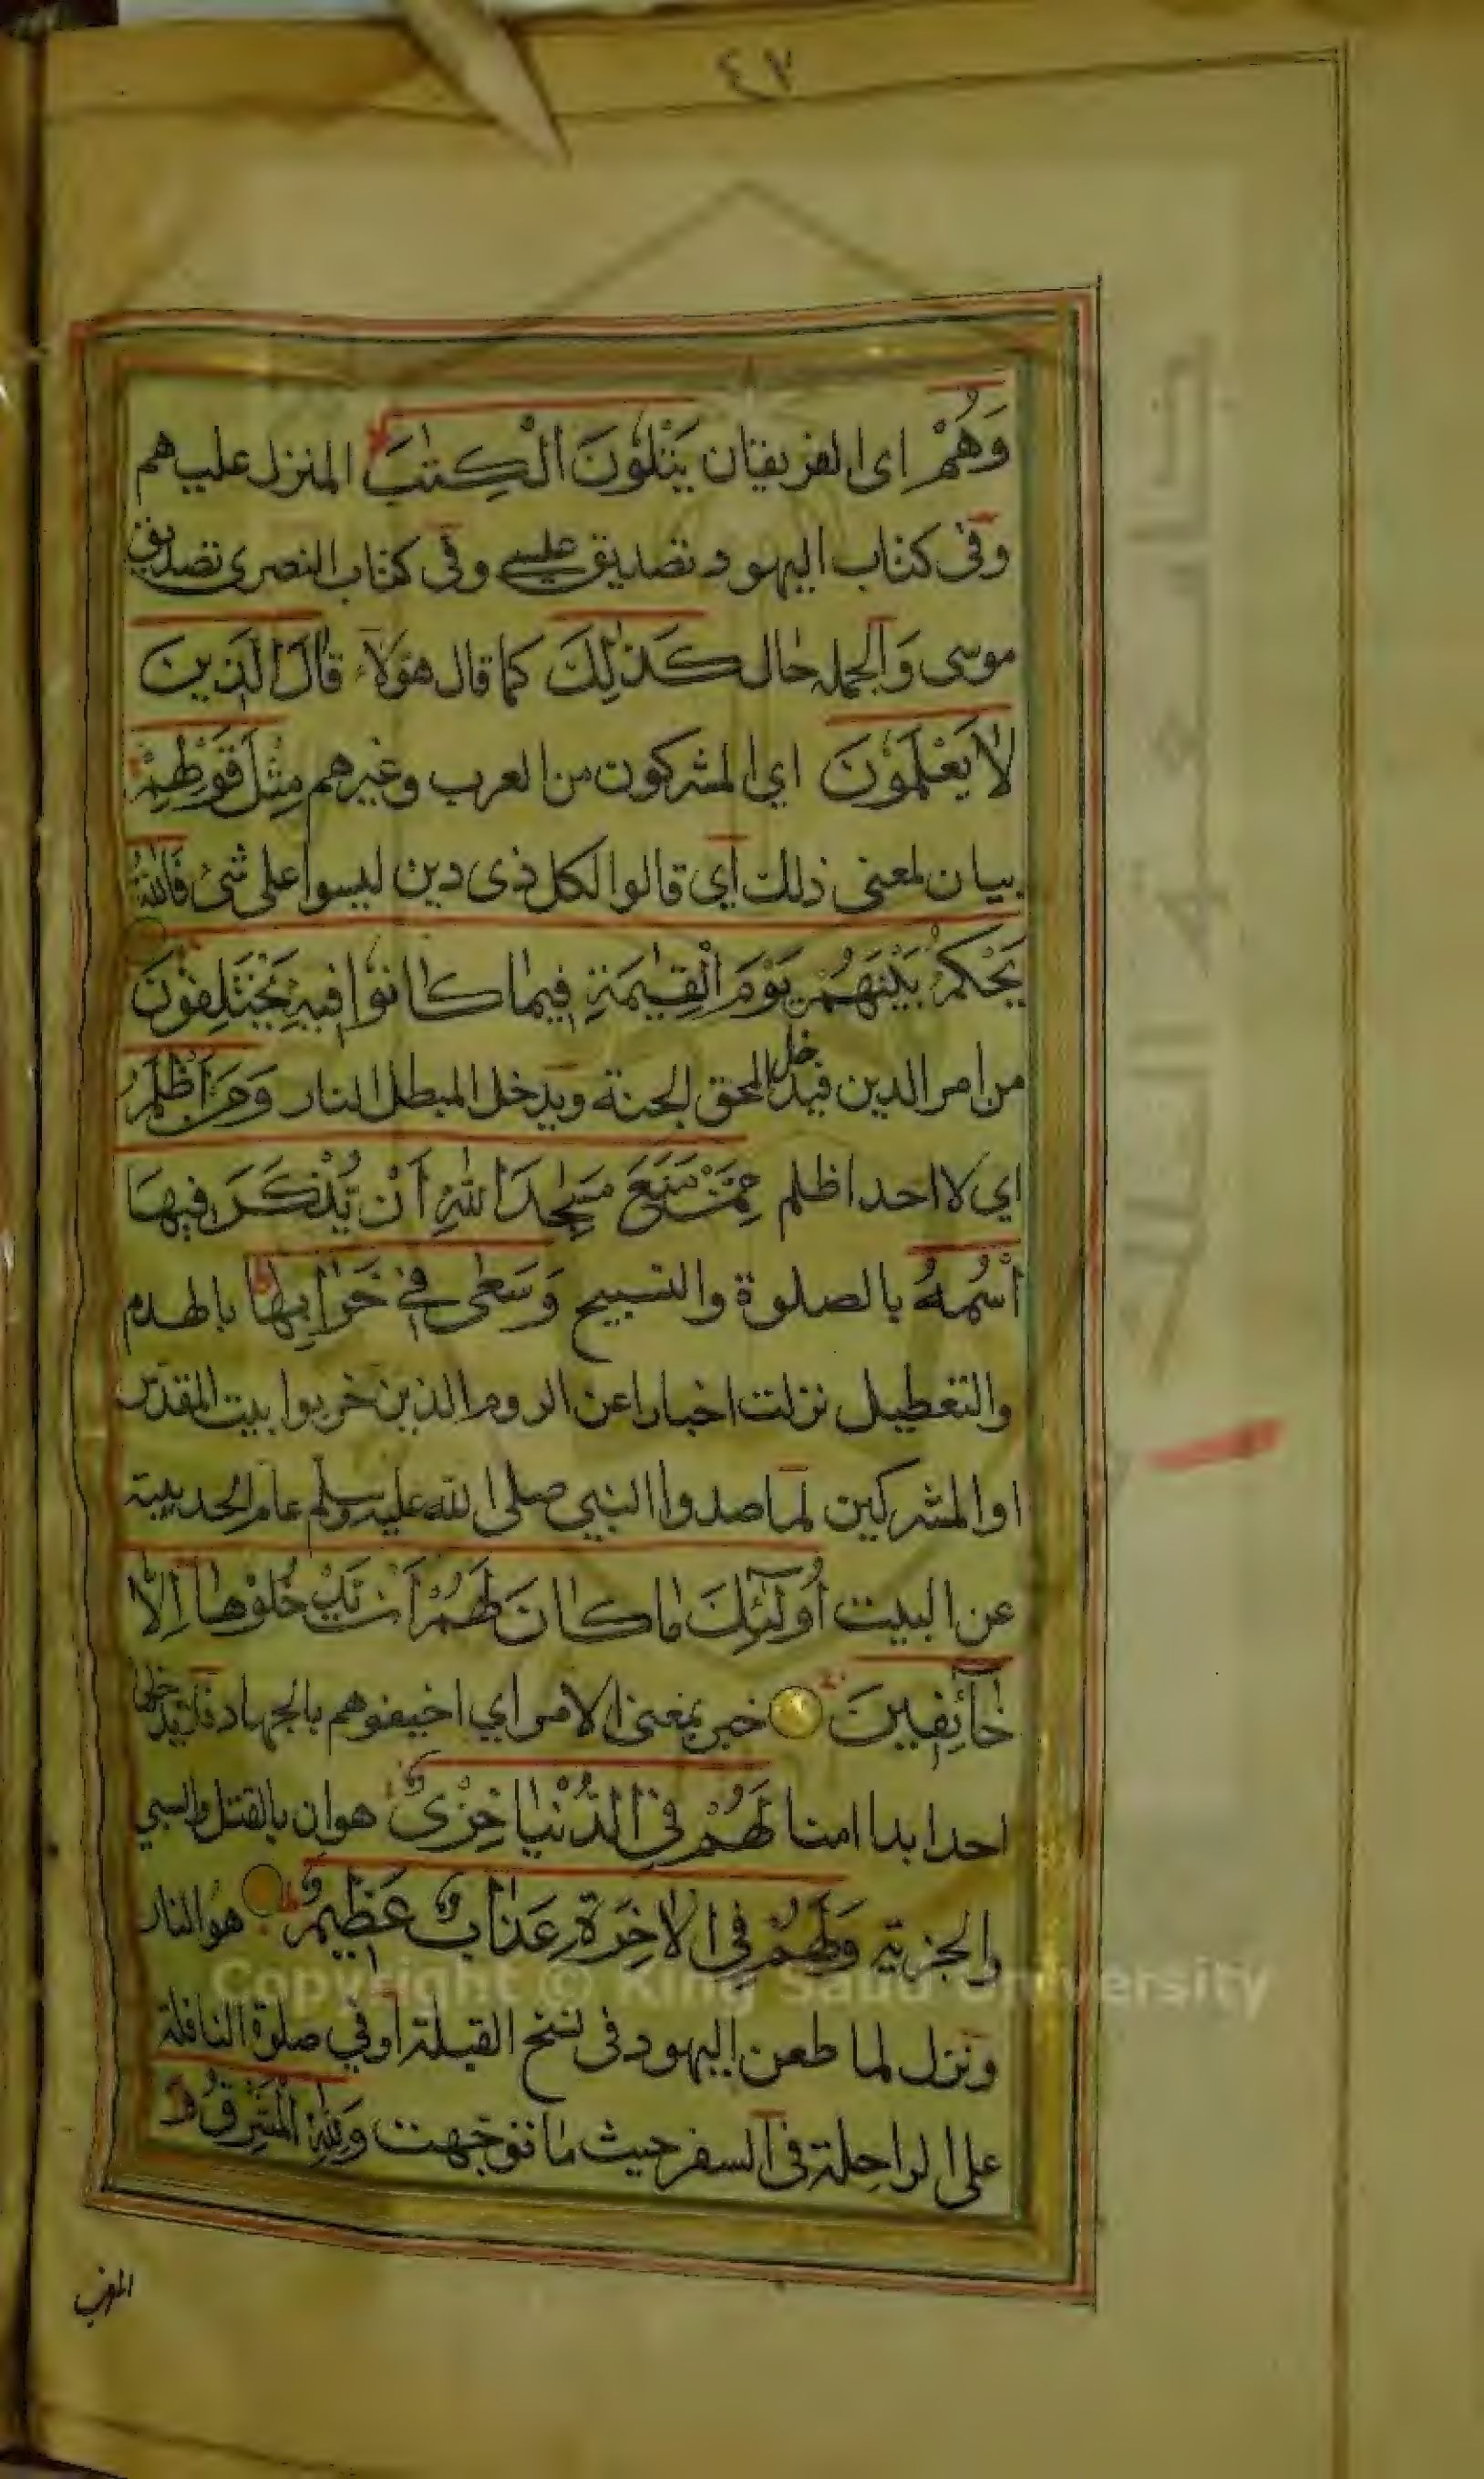 ٤٧
وَهُمْ اى الفريقان يَتْلُوْنَ الْكِتٰبَ المنزل عليهم
وفى كتاب اليهود تصديق عيسى وفى كتاب النصرى تصديق
موسى وَالجمله حال كَذٰلِكَ كما قال هؤلآء قَالَ الَّذِينَ
لَا يَعْلَمُوْنَ اي المشركون من العرب وغيرهم مِثْلَ قَوْلِهِمْ
بيان لمعنى ذلك أي قالوا لكل ذى دين ليسوا على شئ فَاللّٰهُ
يَحْكُمُ بَيْنَهُمْ يَوْمَ الْقِيٰمَةِ فِيمَا كَانُوْا فِيهِ يَخْتَلِفُوْنَ
من امر الدين فيدخل المحق الجنة ويدخل المبطل النار وَمَنْ اَظْلَمُ
اي لا احد اظلم مِمَّنْ مَنَعَ مَسٰجِدَ اللّٰهِ اَنْ يُذْكَرَ فِيهَا
اسْمُهُ بالصلوة والتسبيح وَسَعٰى فِي خَرَابِهَا بالهدم
والتعطيل نزلت اخبارا عن الروم الذين خربوا بيت المقدس
او المشركين لما صدوا النبي صلى الله عليه وسلم عام الحديبية
عن البيت اُولٰٓئِكَ مَا كَانَ لَهُمْ اَنْ يَدْخُلُوْهَا اِلَّا
خَآئِفِينَ خبر بمعنى الامر اي اخيفوهم بالجهاد فلا يدخلها
احد ابدا امنا لَهُمْ فِي الدُّنْيَا خِزْىٌ هوان بالقتل والسبي
والجزية وَلَهُمْ فِي الْاٰخِرَةِ عَذَابٌ عَظِيمٌ هو النار
Copyright © King Saud University
ونزل لما طعن اليهود فى نسخ القبلة أو في صلوة النافلة
على الراحلة فى السفر حيث ما توجهت وَلِلّٰهِ الْمَشْرِقُ وَ
المغرب